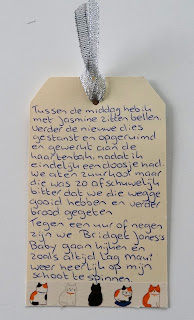 Tussen de middag heb ik
met Jasmine zitten bellen.
Verder de nieuwe dies
gestanst en opgeruimd
en gewerkt aan de
kaartenbak, nadat ik
eindelijk een doosje had.
We aten zuurkool maar
die was zo afschuwelijk
bitter dat we die wegge
gooid hebben en verder
brood gegeten
Tegen een uur of negen
zijn we Bridget Jones's
Baby gaan kijken en
zoals altijd lag Maui
weer heerlijk op mijn
schoot te spinnen.